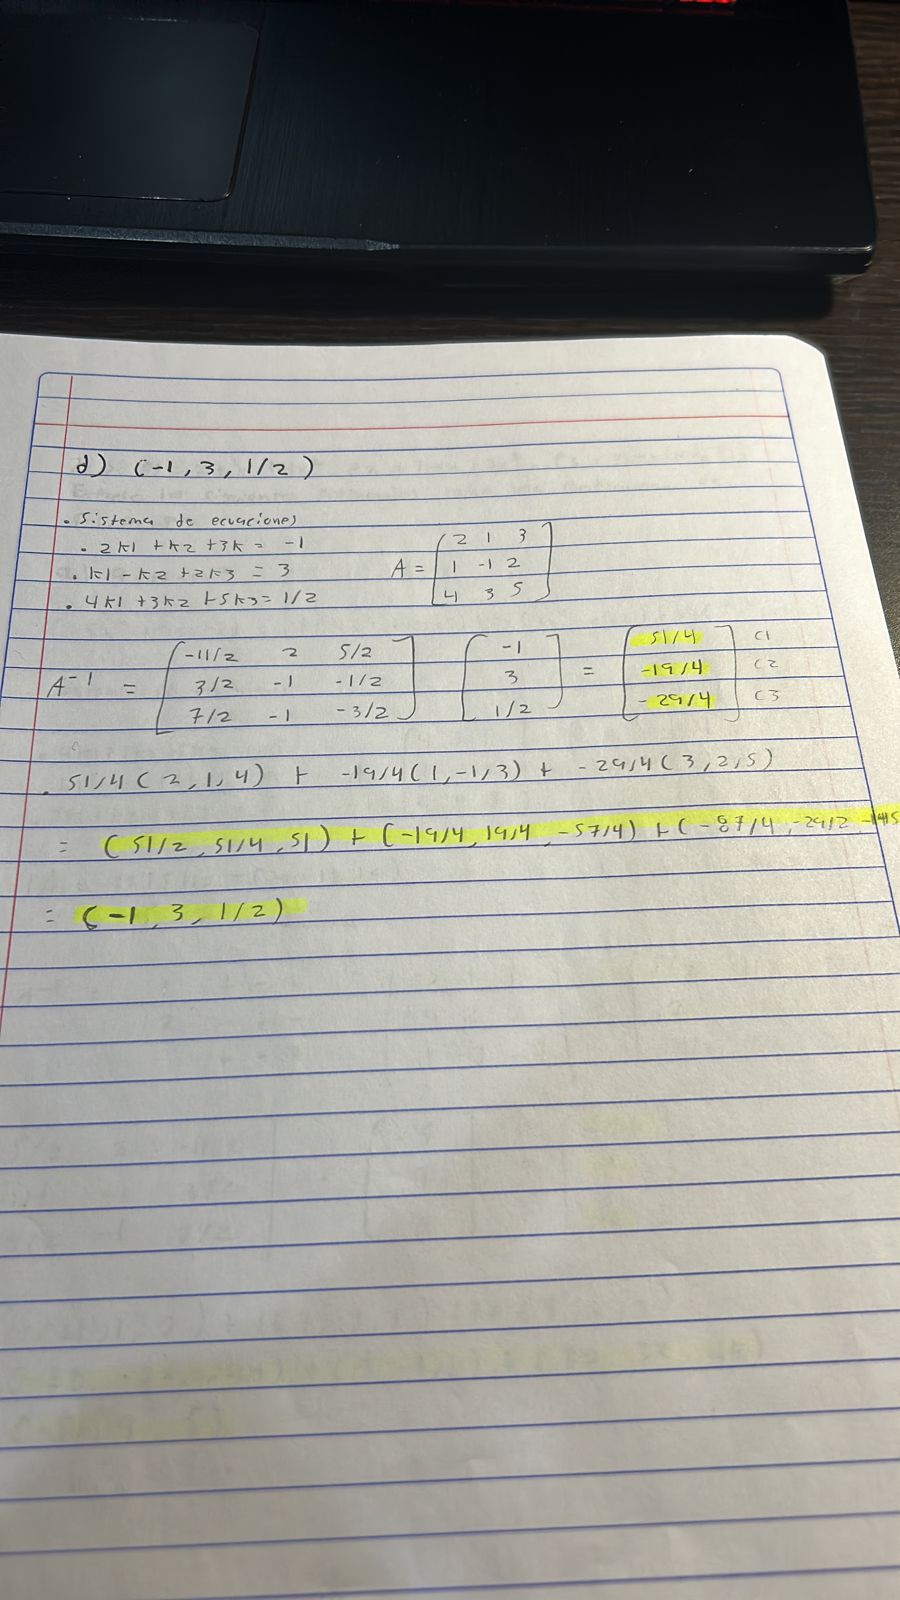 d) (-1, 3, 1/2)
. Sistema de ecuaciones
. 2k1 + k2 + 3k = -1
. k1 - k2 + 2k3 = 3
. 4k1 + 3k2 + 5k3 = 1/2
A = [2 1 3
1 -1 2
4 3 5]
A⁻¹ = [-11/2 2 5/2
3/2 -1 -1/2
7/2 -1 -3/2] [-1
3
1/2] = [51/4
-19/4
-29/4] C1
C2
C3
. 51/4 (2, 1, 4) + -19/4 (1, -1, 3) + -29/4 (3, 2, 5)
= (51/2, 51/4, 51) + (-19/4, 19/4, -57/4) + (-87/4, -29/2, -145
= (-1, 3, 1/2)